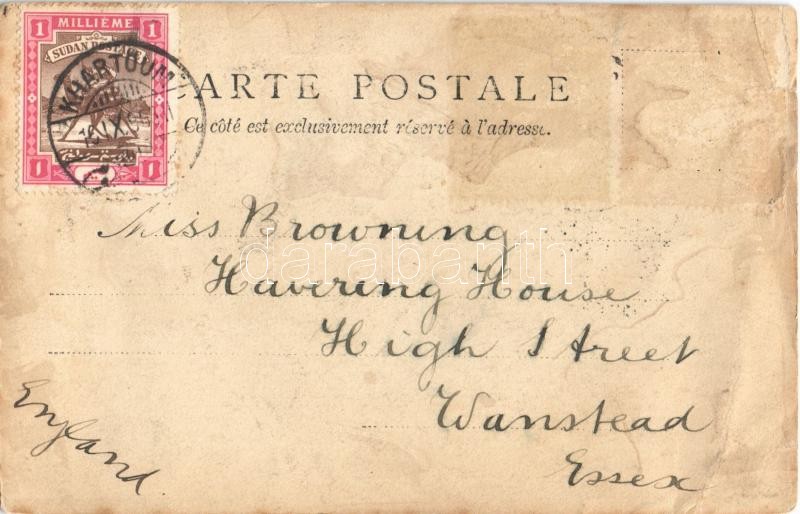 1 MILLIÈME 1
SUDAN POSTAGE
KHARTOUM
CARTE POSTALE
Ce côté est exclusivement réservé à l'adresse.
1 1
Miss Browning
darabanth
Havering House
High Street
Wanstead
England
Essex